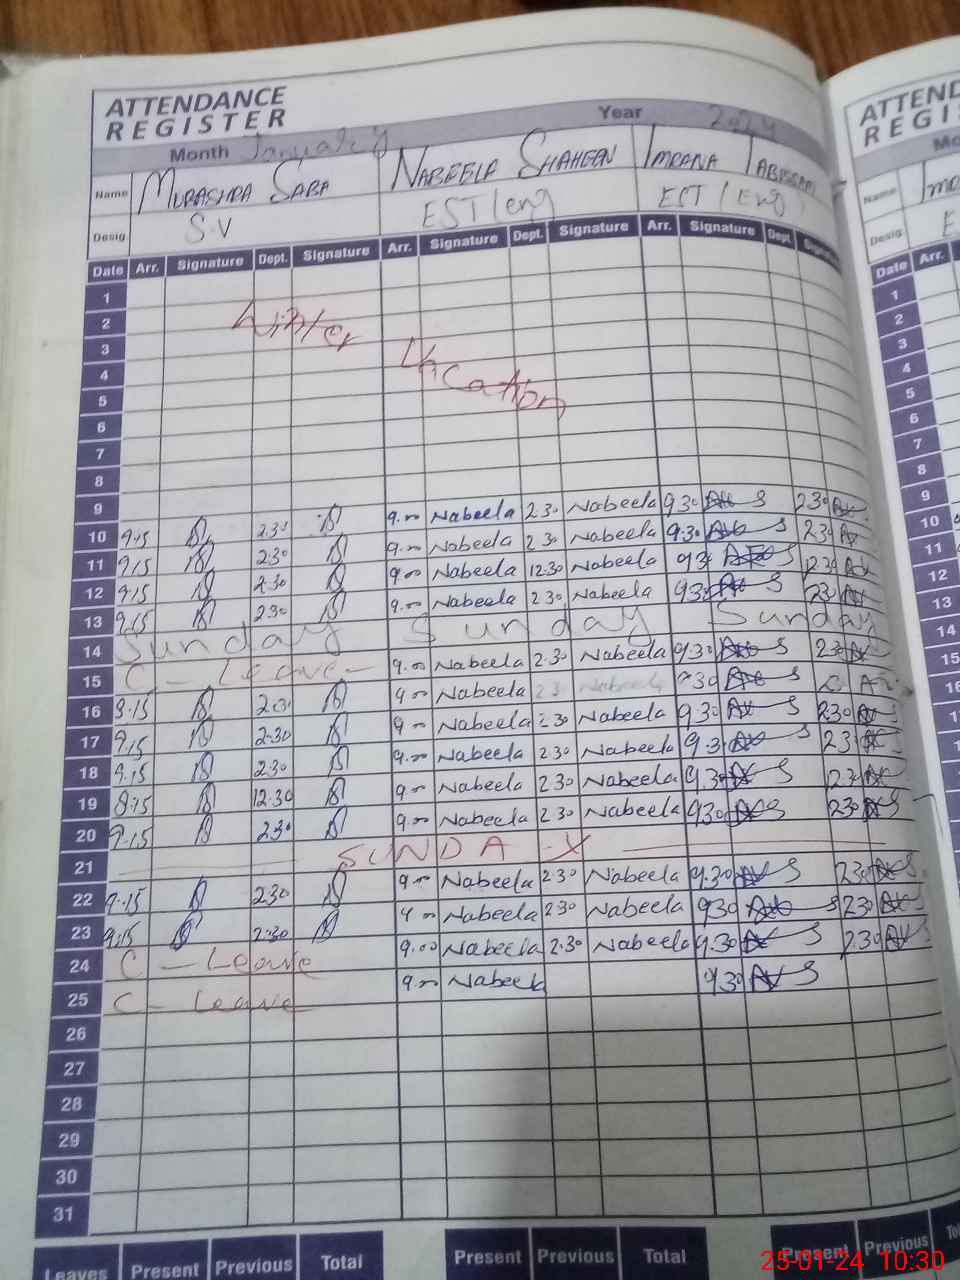 ATTENDANCE
REGISTER
Month January Year 2024
Name MUBASHRA SABA NABEELA SHAHEEN IMRANA
Desig. S.V EST/eng EST/Eng
Date Arr. Signature Dept. Signature Arr. Signature Dept. Signature Arr. Signature Dept.
1
2 Winter
3
4 Vacation
5
6
7
8
9 9.00 Nabeela 2.30 Nabeela 9.30 2.30
10 9.15 2.30 9.00 Nabeela 2.30 Nabeela 9.30 2.30
11 9.15 2.30 9.00 Nabeela 12.30 Nabeela 9.3 12.30
12 9.15 2.30 9.00 Nabeela 2.30 Nabeela 9.30 2.30
13 9.15 2.30
14 Sunday Sunday Sunday
15 C-Leave- 9.00 Nabeela 2.30 Nabeela 9.30 2.30
16 9.15 2.3 9.00 Nabeela 2.3 Nabeela 9.30
17 9.15 2.30 9.00 Nabeela 2.30 Nabeela 9.30 2.30
18 9.15 2.30 9.00 Nabeela 2.30 Nabeela 9.3 2.3
19 8.15 12.30 9.00 Nabeela 2.30 Nabeela 9.30 12.30
20 9.15 2.30 9.00 Nabeela 2.30 Nabeela 9.30 2.30
21 SUNDAY
22 9.15 2.30 9.00 Nabeela 2.30 Nabeela 9.30 2.30
23 9.15 2.30 9.00 Nabeela 2.30 Nabeela 9.30 2.30
24 C-Leave 9.00 Nabeela 2.30 Nabeela 9.30 2.30
25 C-Leave 9.00 Nabeel 9.30
26
27
28
29
30
31
Leaves Present Previous Total Present Previous Total Present Previous
ATTEND
Name
Desig. E
Date Arr.
1
2
3
4
5
6
7
8
9
10
11
12
13
14
15
16
25-01-24 10:30